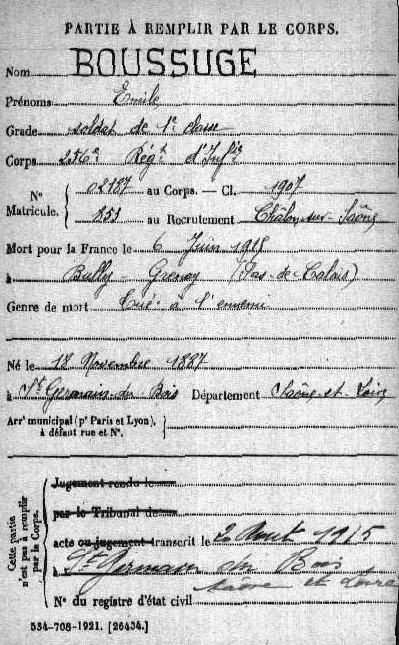 PARTIE À REMPLIR PAR LE CORPS.
Nom BOUSSUGE
Prénoms Emile
Grade soldat de 1e classe
Corps 256e Régt d'Infie
N° Matricule. 02187 au Corps. — Cl. 1907
853 au Recrutement Châlon sur Saône
Mort pour la France le 6 Juin 1915
à Bully-Grenay (Pas-de-Calais)
Genre de mort Tué à l'ennemi
Né le 18 Novembre 1887
à St Germain du Bois Département Saône-et-Loire
Arrt municipal (pr Paris et Lyon), à défaut rue et N°.
Cette partie n'est pas à remplir par le Corps.
Jugement rendu le
par le Tribunal de
acte ou jugement transcrit le 2 Aout 1915
à St Germain du Bois
Saône et Loire
N° du registre d'état civil
534-708-1921. [26434.]